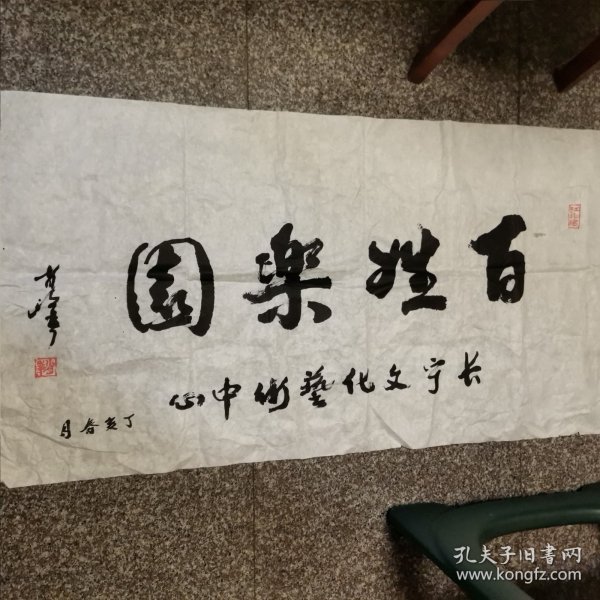 百姓樂園
长宁文化藝術中心
丁亥春月
孔夫子旧書网
www.kongfz.com